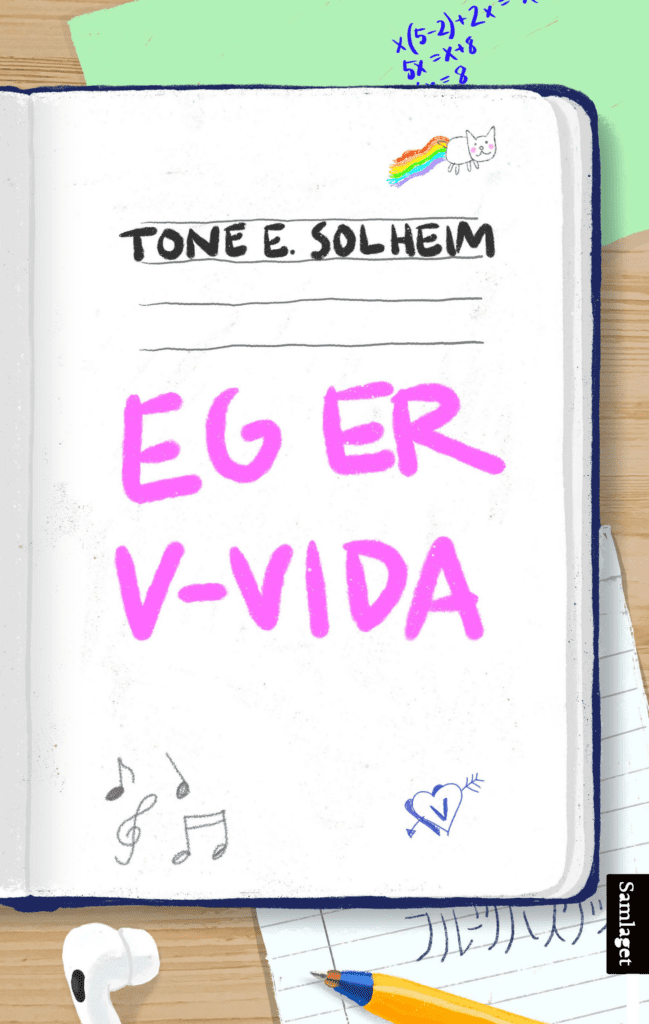 x(5-2)+2x=
5x=x+8
=8
TONE E. SOLHEIM
EG ER
V-VIDA
V
Samlaget
フルーツバスケッ